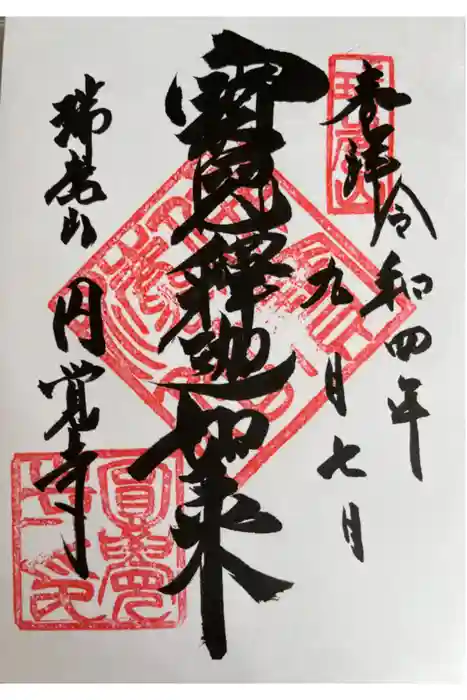 奉拝
令和四年
九月七日
寳冠釋迦如来
瑞鹿山
円覚寺